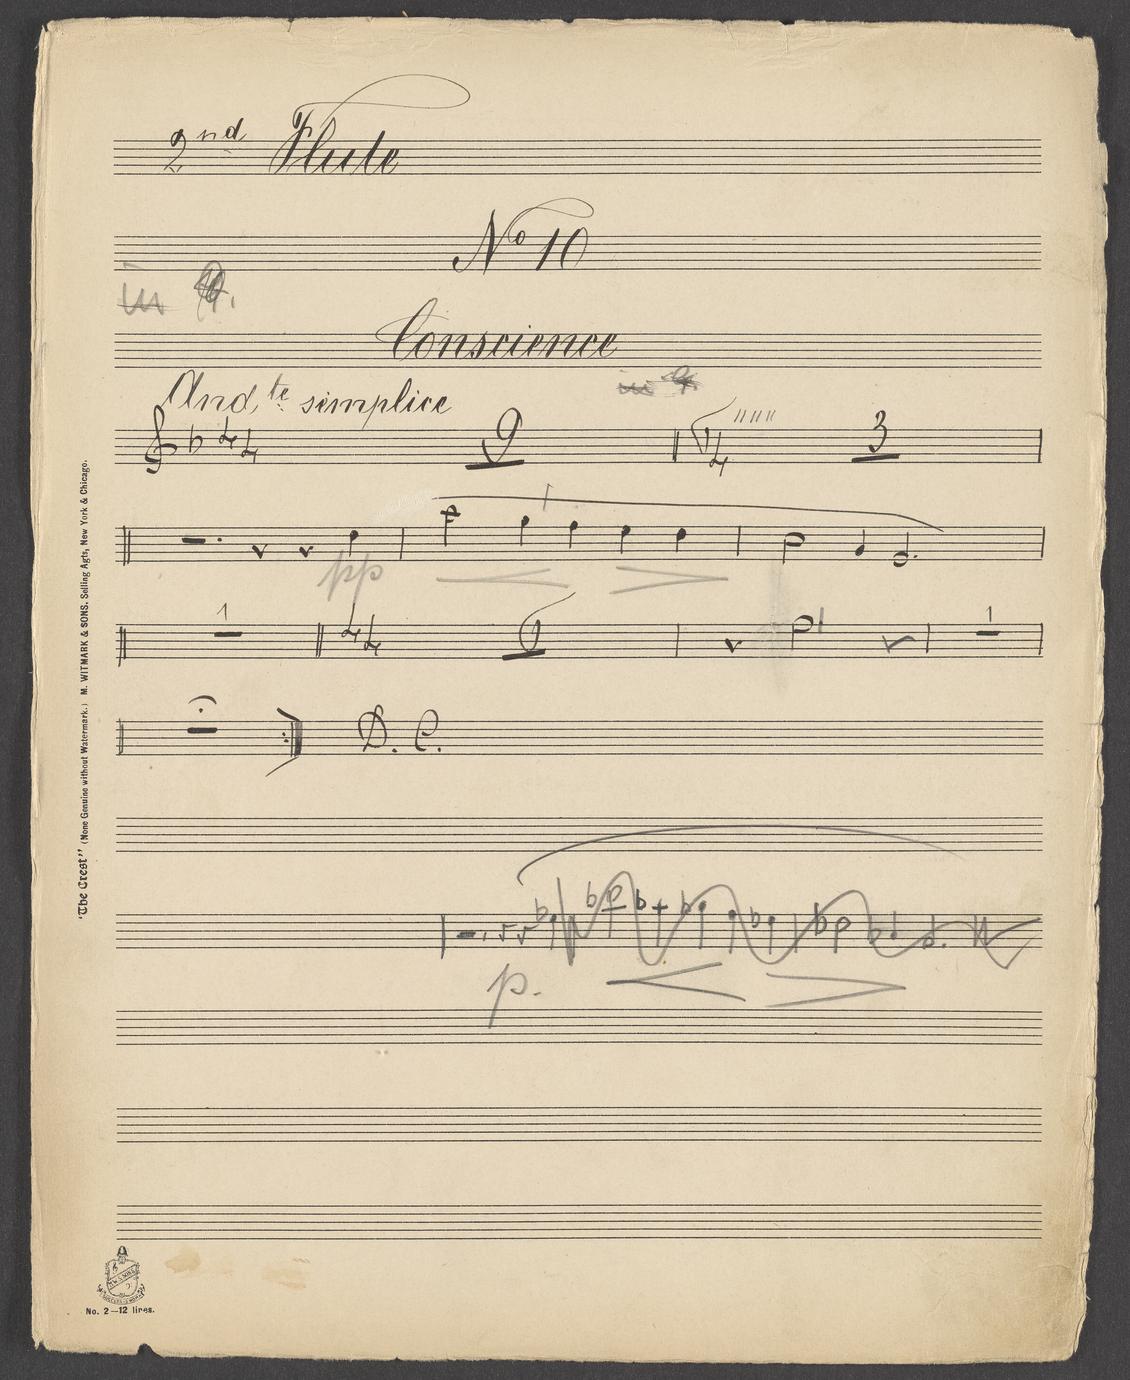 2nd Flute
No 10
in
Conscience
Andte simplice
in
4 4 9 4 3
pp
1 4 4 1 1
D. C.
p.
"The Crest" (None Genuine without Watermark.) M. WITMARK & SONS, Selling Agts, New York & Chicago.
No. 2—12 lines.